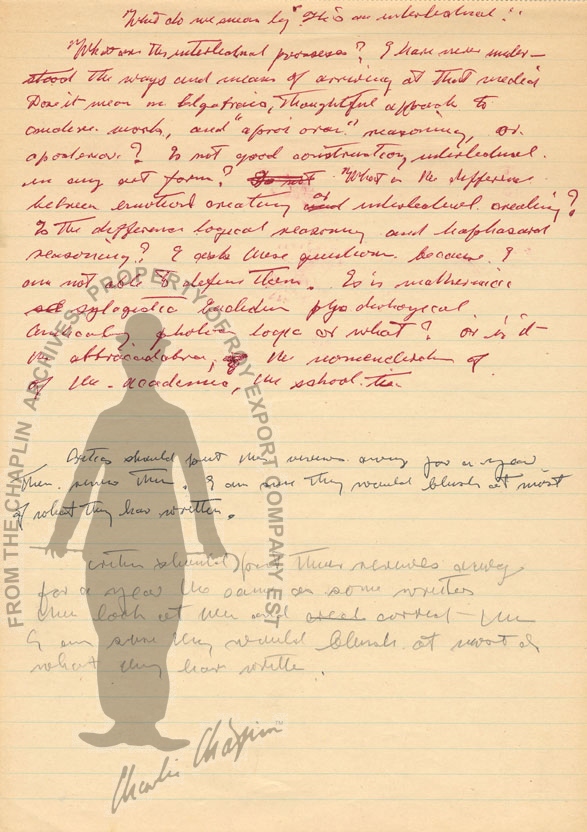 What do we mean by "This an intellectual".
"What are the intellectual processes? I have never under-
stood the ways and means of arriving at that
Does it mean an thoughtful approach to
and reasoning, or
aposteriori? Is not good construction intellectual
in any art form? Is not What is the difference
between emotional creating and or intellectual creating?
Is the difference logical reasoning and haphazard
reasoning? I ask these questions because I
am not able to define them. Is it mathematics
sylogistic Euclidian
logic or what? or is it
the abbracadabra, of the nomenclature of
of the academic, the school tie.
Critics should put their reviews away for a year
then review them. I am sure they would blush at most
of what they have written.
critics should put their reviews away
for a year the same as some writers
then look at them and correct them
I am sure they would blush at most of
what they have written.
FROM THE CHAPLIN ARCHIVES, PROPERTY OF ROY EXPORT COMPANY EST
Charlie Chaplin